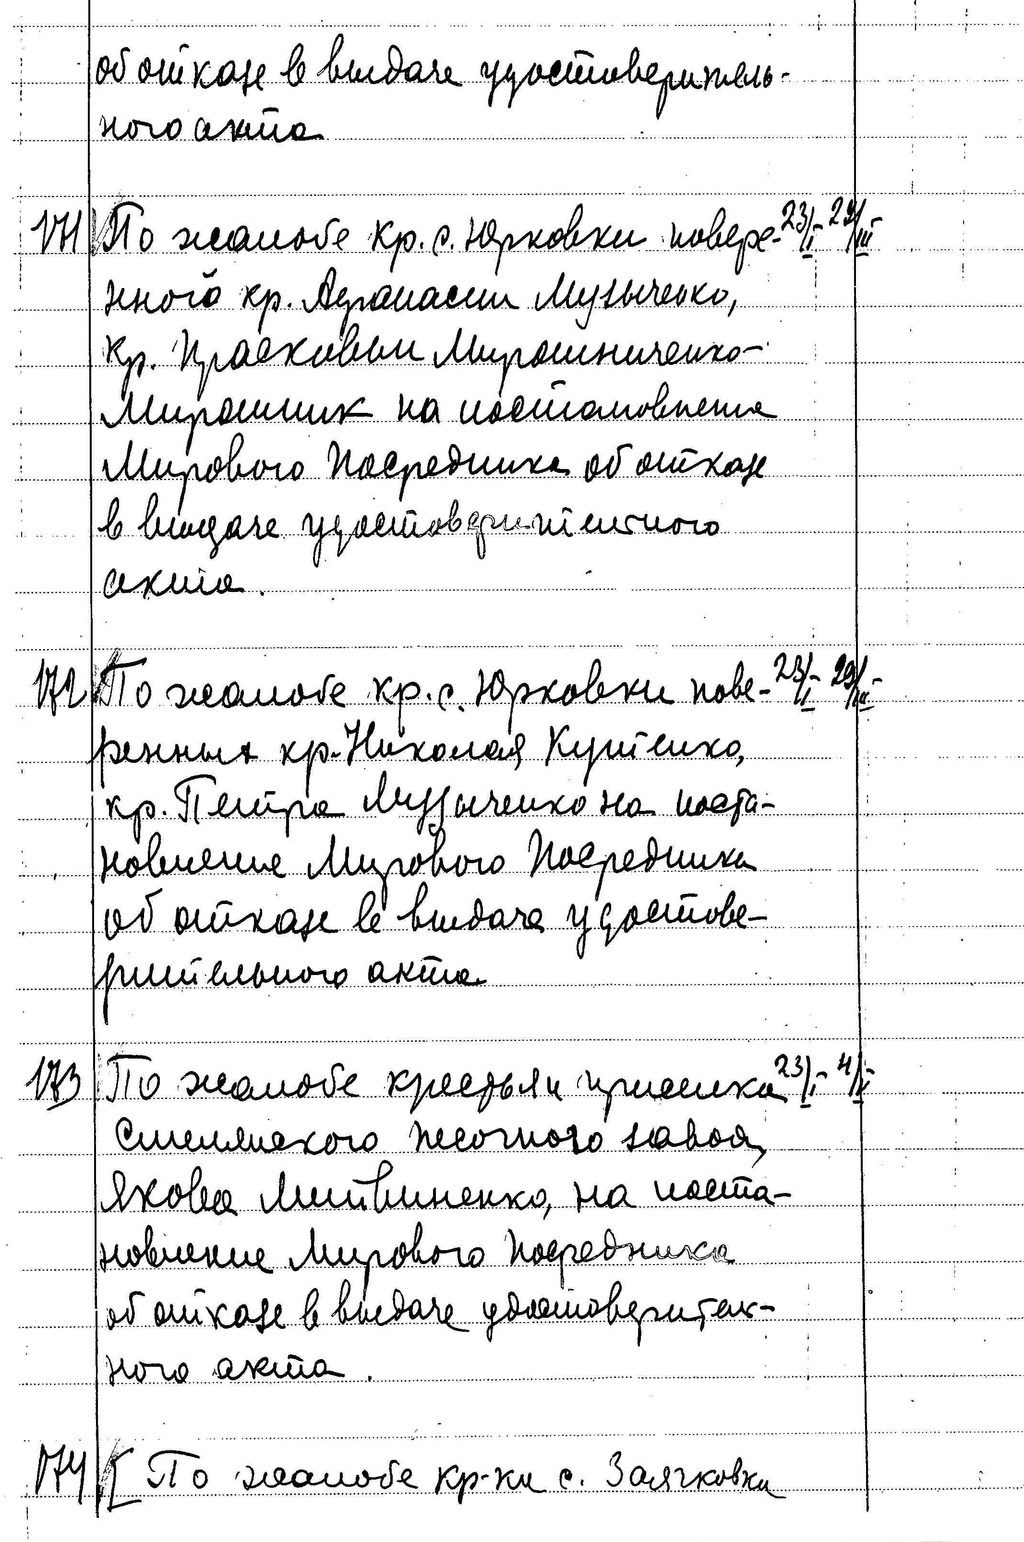 об отказе в выдаче удостоверитель-
ного акта
171 По жалобе кр. с. Юрковки повере- 23/I - 29/III
нного кр. Афанасии Музыченко,
кр. Прасковьи Мирошниченко-
Мирошник на постановления
Мирового Посредника об отказе
в выдаче удостоверительного
акта.
172 По жалобе кр. с. Юрковки пове- 23/I - 29/III
ренных кр. Николая Кутенко,
кр. Петра Музыченко на поста-
новление Мирового Посредника
об отказе в выдаче удостове-
рительного акта
173 По жалобе крестьян приселка 23/I - 4/II
Смелянского песочного завода,
Якова Литвиненко, на поста-
новление Мирового Посредника
об отказе в выдаче удостоверитель-
ного акта.
174 [ По жалобе кр-ки с. Заячковки